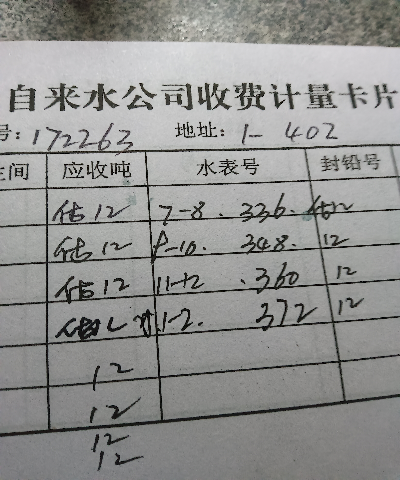 自来水公司收费计量卡片
号:172263 地址:1-402
主间 应收吨 水表号 封铅号
估12 7-8. 336. 估12
估12 9-10. 348. 12
估12 11-12 .360 12
1-2. 372 12
12
12
12
12